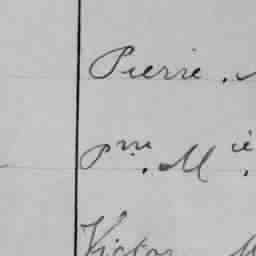 Pierre
Pre. Mie.
Victor